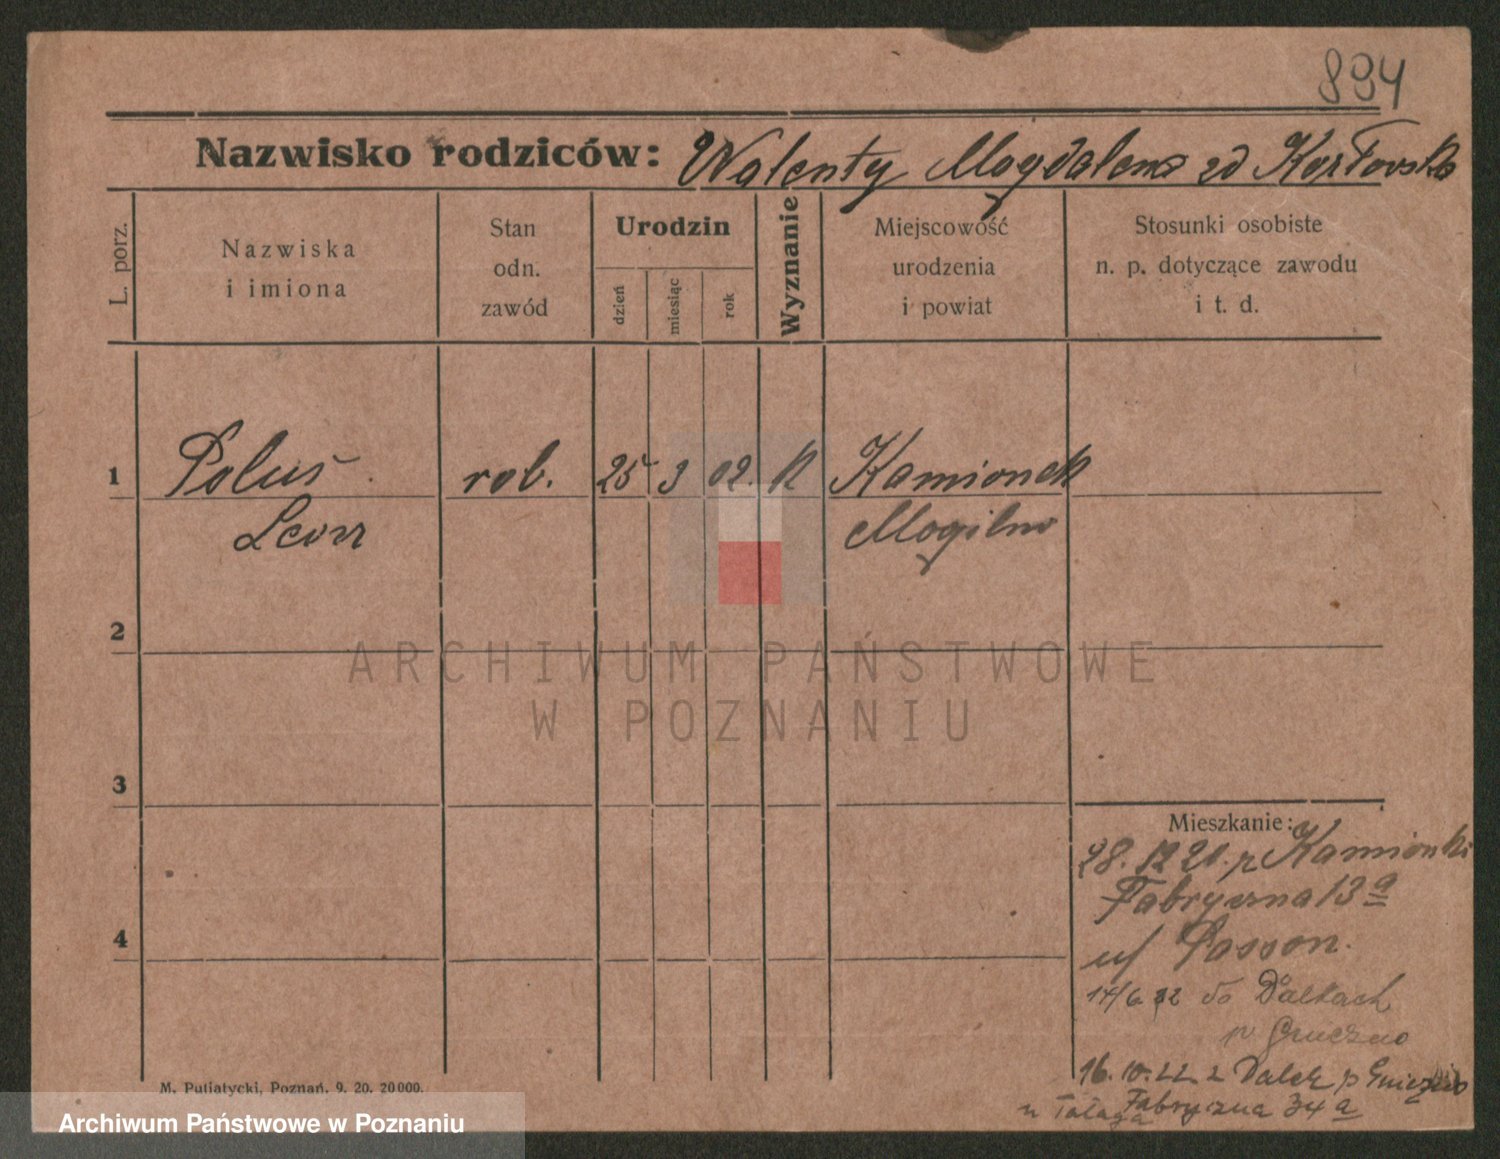 894
Nazwisko rodziców: Walenty Magdalena zd Kozłowska
L. porz.
Nazwiska
i imiona
Stan
odn.
zawód
Urodzin
dzień
miesiąc
rok
Wyznanie
Miejscowość
urodzenia
i powiat
Stosunki osobiste
n. p. dotyczące zawodu
i t. d.
1 Poluś rob. 25 3 02. K Kamionek
Leon Mogilno
2
ARCHIWUM PAŃSTWOWE
W POZNANIU
3
Mieszkanie:
28. 12 21. p Kamionki
Fabryczna 13 a
u/ Posson.
4
14/6 22 do Dalkach
p Gniezno
16. 10. 22 z Dalek p Gniezno
Fabryczna 34 a
u
M. Putiatycki, Poznań. 9. 20. 20000.
Archiwum Państwowe w Poznaniu